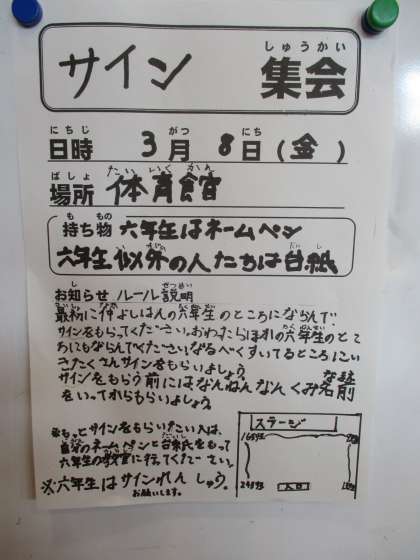 サイン 集会
しゅうかい
日時 3月 8日(金)
にちじ がつ にち
場所 体育館
ばしょ たいいくかん
持ち物 六年生はネームペン
も もの
六年生以外の人たちは台紙
お知らせ ルール説明
最初に仲よしはんの六年生のところにならんで
サインをもらってください。おわったらほかの六年生のとこ
ろにもならんでください。なるべくすいてるところにい
きたくさんサインをもらいましょう。
サインをもらう前にはなんねんなんくみ名前
をいってからもらいましょう。
※もっとサインをもらいたい人は、
自分のネームペンと台紙をもって
六年生の教室に行ってください。
※六年生はサインれんしゅう。
お願いします。
ステージ
入口